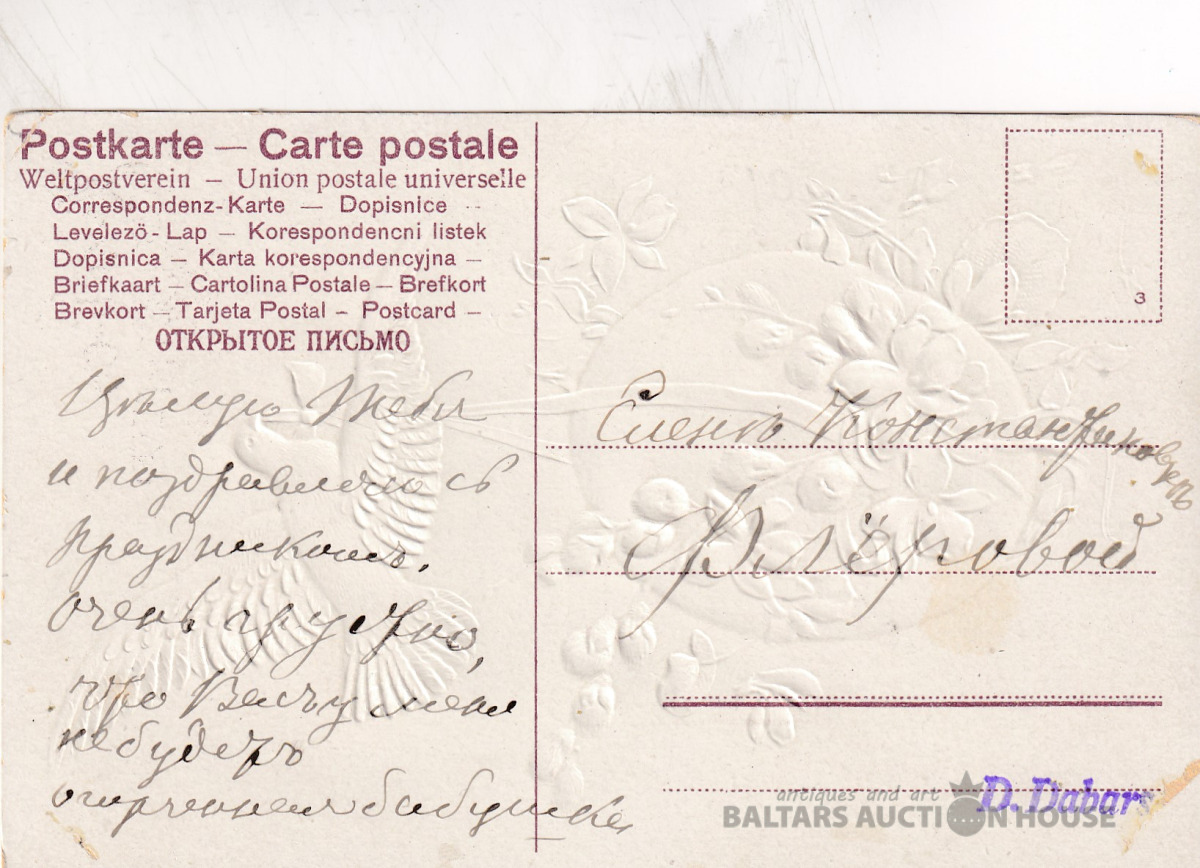 Postkarte — Carte postale
Weltpostverein — Union postale universelle
Correspondenz-Karte — Dopisnice
Levelezö-Lap — Korespondencni listek
Dopisnica — Karta korespondencyjna —
Briefkaart — Cartolina Postale — Brefkort
Brevkort — Tarjeta Postal - Postcard —
ОТКРЫТОЕ ПИСЬМО
Цѣлую Тебя
и поздравляю съ
праздникомъ,
очень грустно,
что Васъ у меня
не будетъ
огорченная бабушка
3
Еленѣ Константиновнѣ
Флёровой
D. Dabar
antiques and art
BALTARS AUCTION HOUSE